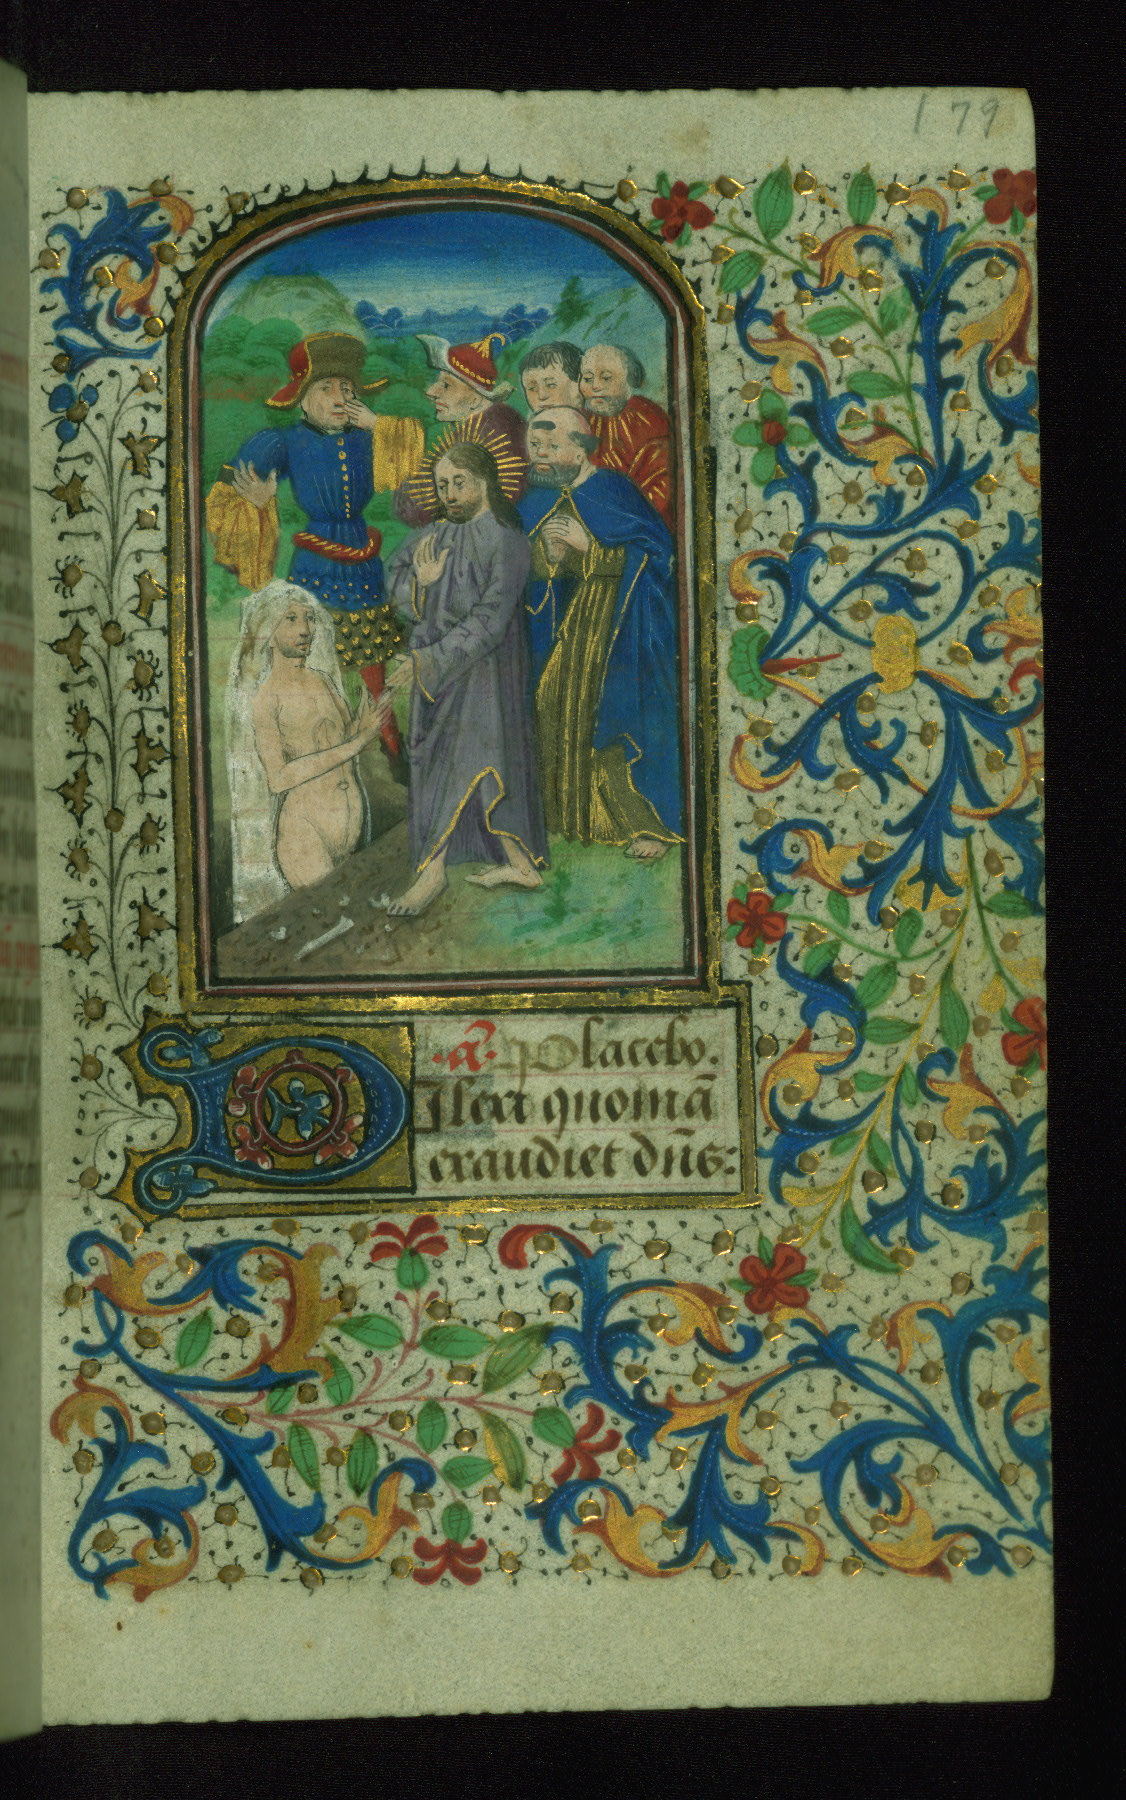 179
.a. Placebo.
Dilexi quoniā
exaudiet dn̄s: